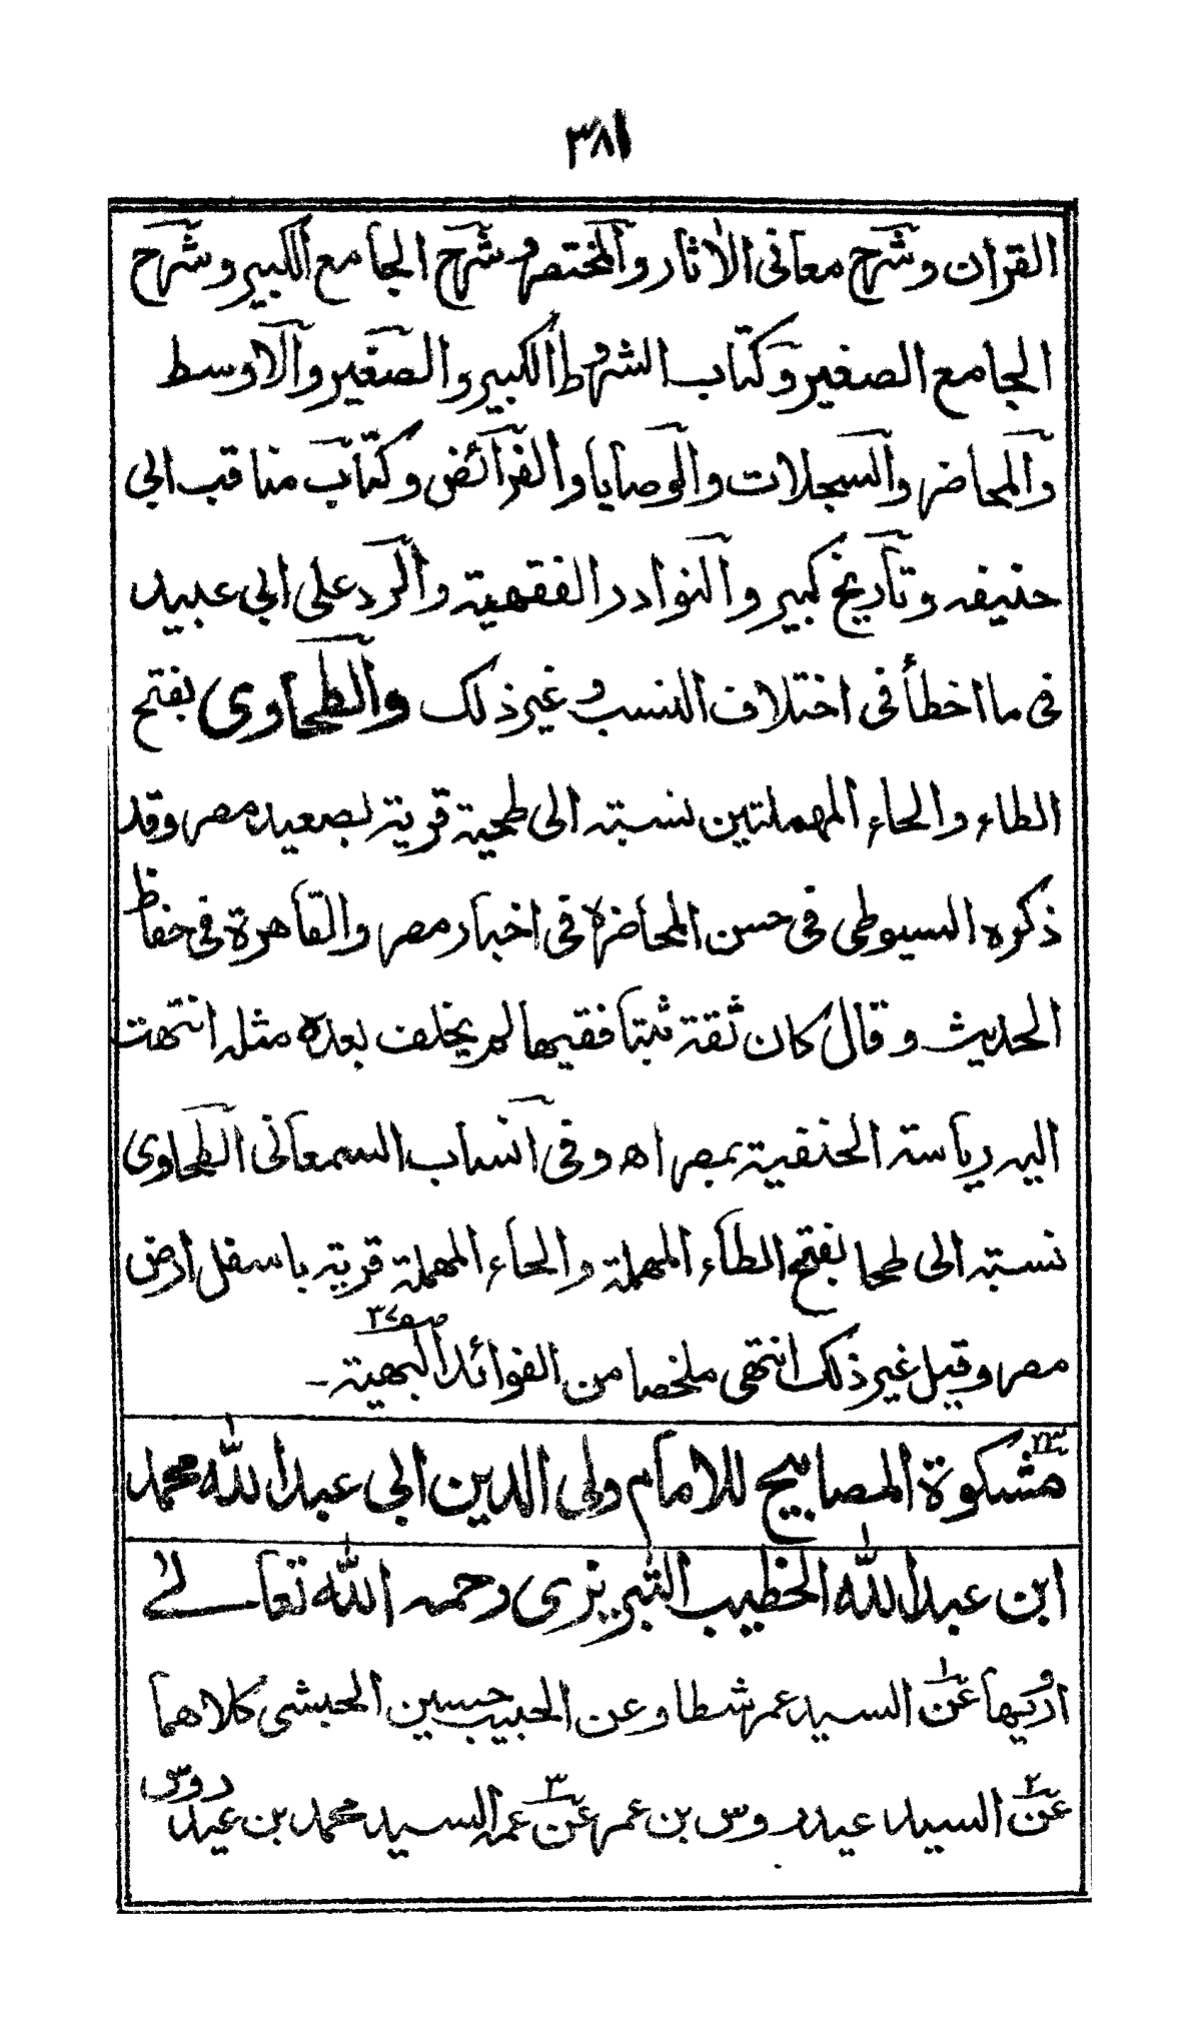 ٣٨١
القران وشرح معانى الاثار والمختصر وشرح الجامع الكبير وشرح
الجامع الصغير وكتاب الشروط الكبير والصغير والاوسط
والمحاضر والسجلات والوصايا والفرائض وكتاب مناقب ابى
حنيفه وتاريخ كبير والنوادر الفقهية والرد على ابى عبيد
فى ما اخطأ فى اختلاف النسب وغير ذلك والطحاوى بفتح
الطاء والحاء المهملتين نسبته الى طحية قرية بصعيد مصر وقد
ذكره السيوطى فى حسن المحاضرة فى اخبار مصر والقاهرة فى حفاظ
الحديث وقال كان ثقة ثبتا فقيها لم يخلف بعده مثله انتهت
اليه رياسة الحنفية بمصر اھ وفى انساب السمعانى الطحاوى
نسبته الى طحا بفتح الطاء المهملة والحاء المهملة قرية باسفل ارض
مصر وقيل غير ذلك انتهى ملخصا من الفوائد البهية۔
مشكوة المصابيح للامام ولى الدين ابى عبد الله محمد
ابن عبد الله الخطيب التبريزى رحمه الله تعالے
ارويها عن السيد عمر شطا وعن الحبيب حسين الحبشى كلاهما
عن السيد عيدروس بن عمر عن عمه السيد محمد بن عيدروس